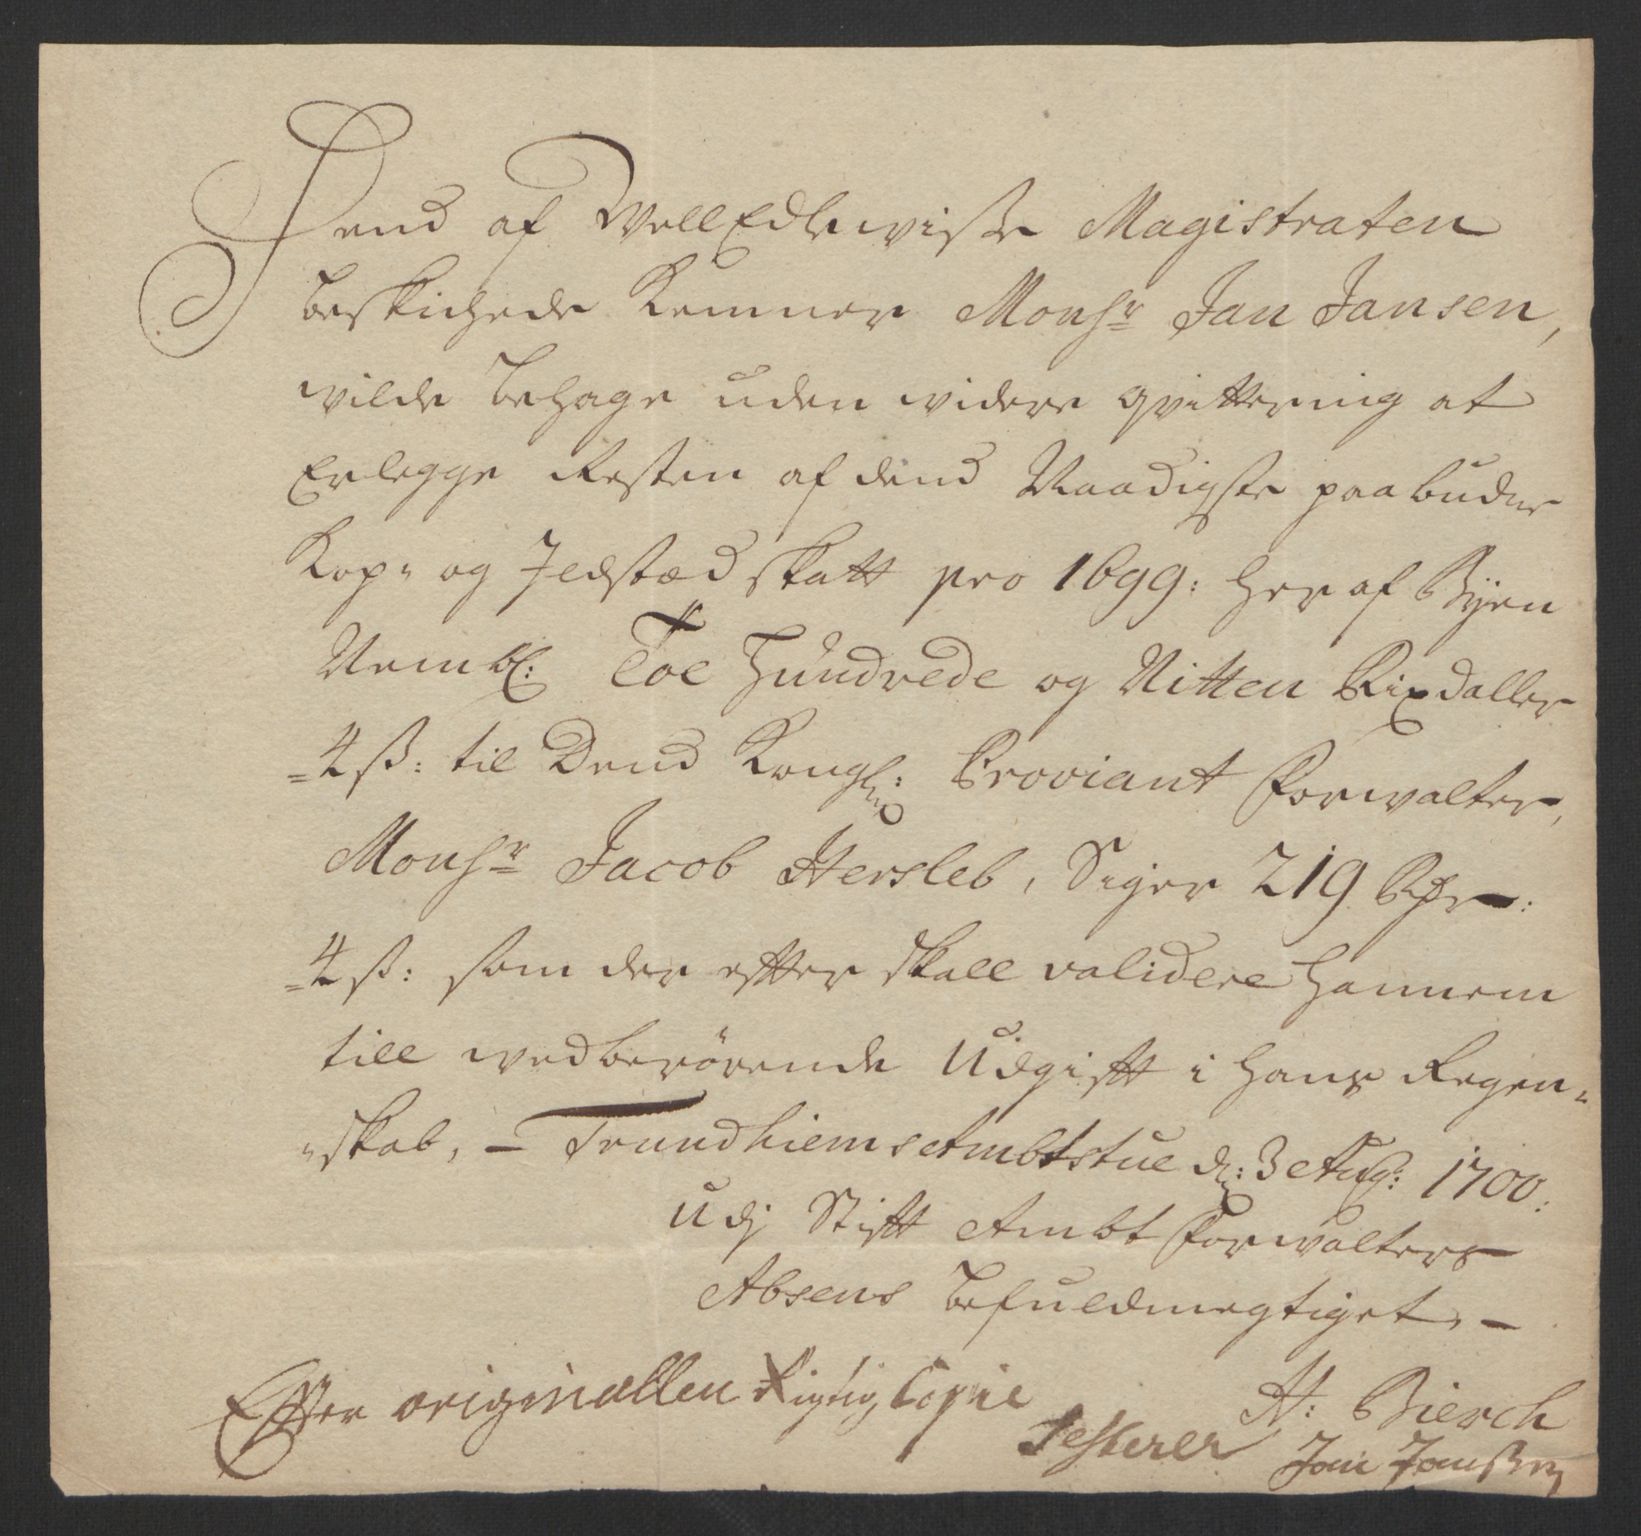 Dend af WellEdlewisse Magistraten
beskichede Kemner Monsr Jan Jansen,
wilde behage uden widere qvittering at
Erlegge Resten af dend Naadigste paabudne
Kop- og Jldstæd skatt pro 1699: her af Byen
Nembl: Toe Hundrede og Nitten Rixdaller
4 ß: til Dend Kongl: Proviant Forwalter,
Monsr Jacob Hersleb, Siger 219 Rdr:
4 ß: som der efter skall validere hannem
till wedberørende Udgifft i hans Regen-
-skab, - Trundhiems Ambtstue d: 3 Aug: 1700:
Udj Stifft Ambt Forwalters
Absens befuldmegtiget, -
H: Bierch
Effter originallen Rigtig Copie
Testerer Jan Janssen